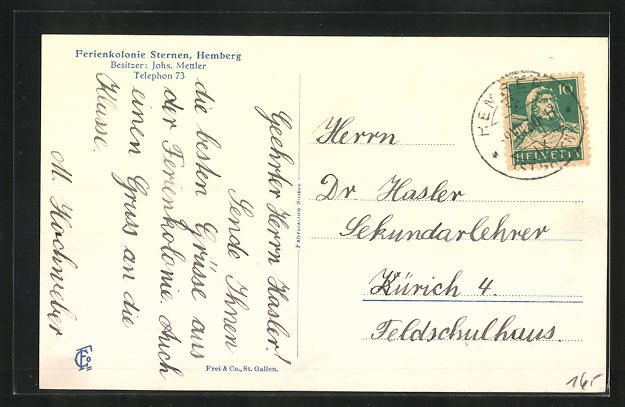 Ferienkolonie Sternen, Hemberg
Besitzer: Johs. Mettler
Telephon 73
Geehrter Herrn Hasler!
Sende Ihnen
die besten Grüsse aus
der Ferienkolonie. Auch
einen Gruss an die
Klasse.
M. Hochweber
Fabrication Suisse
Frei & Co., St. Gallen.
10
HELVETIA
HEMBERG
Herrn
Dr Hasler
Sekundarlehrer
Zürich 4.
Feldschulhaus.
16.-